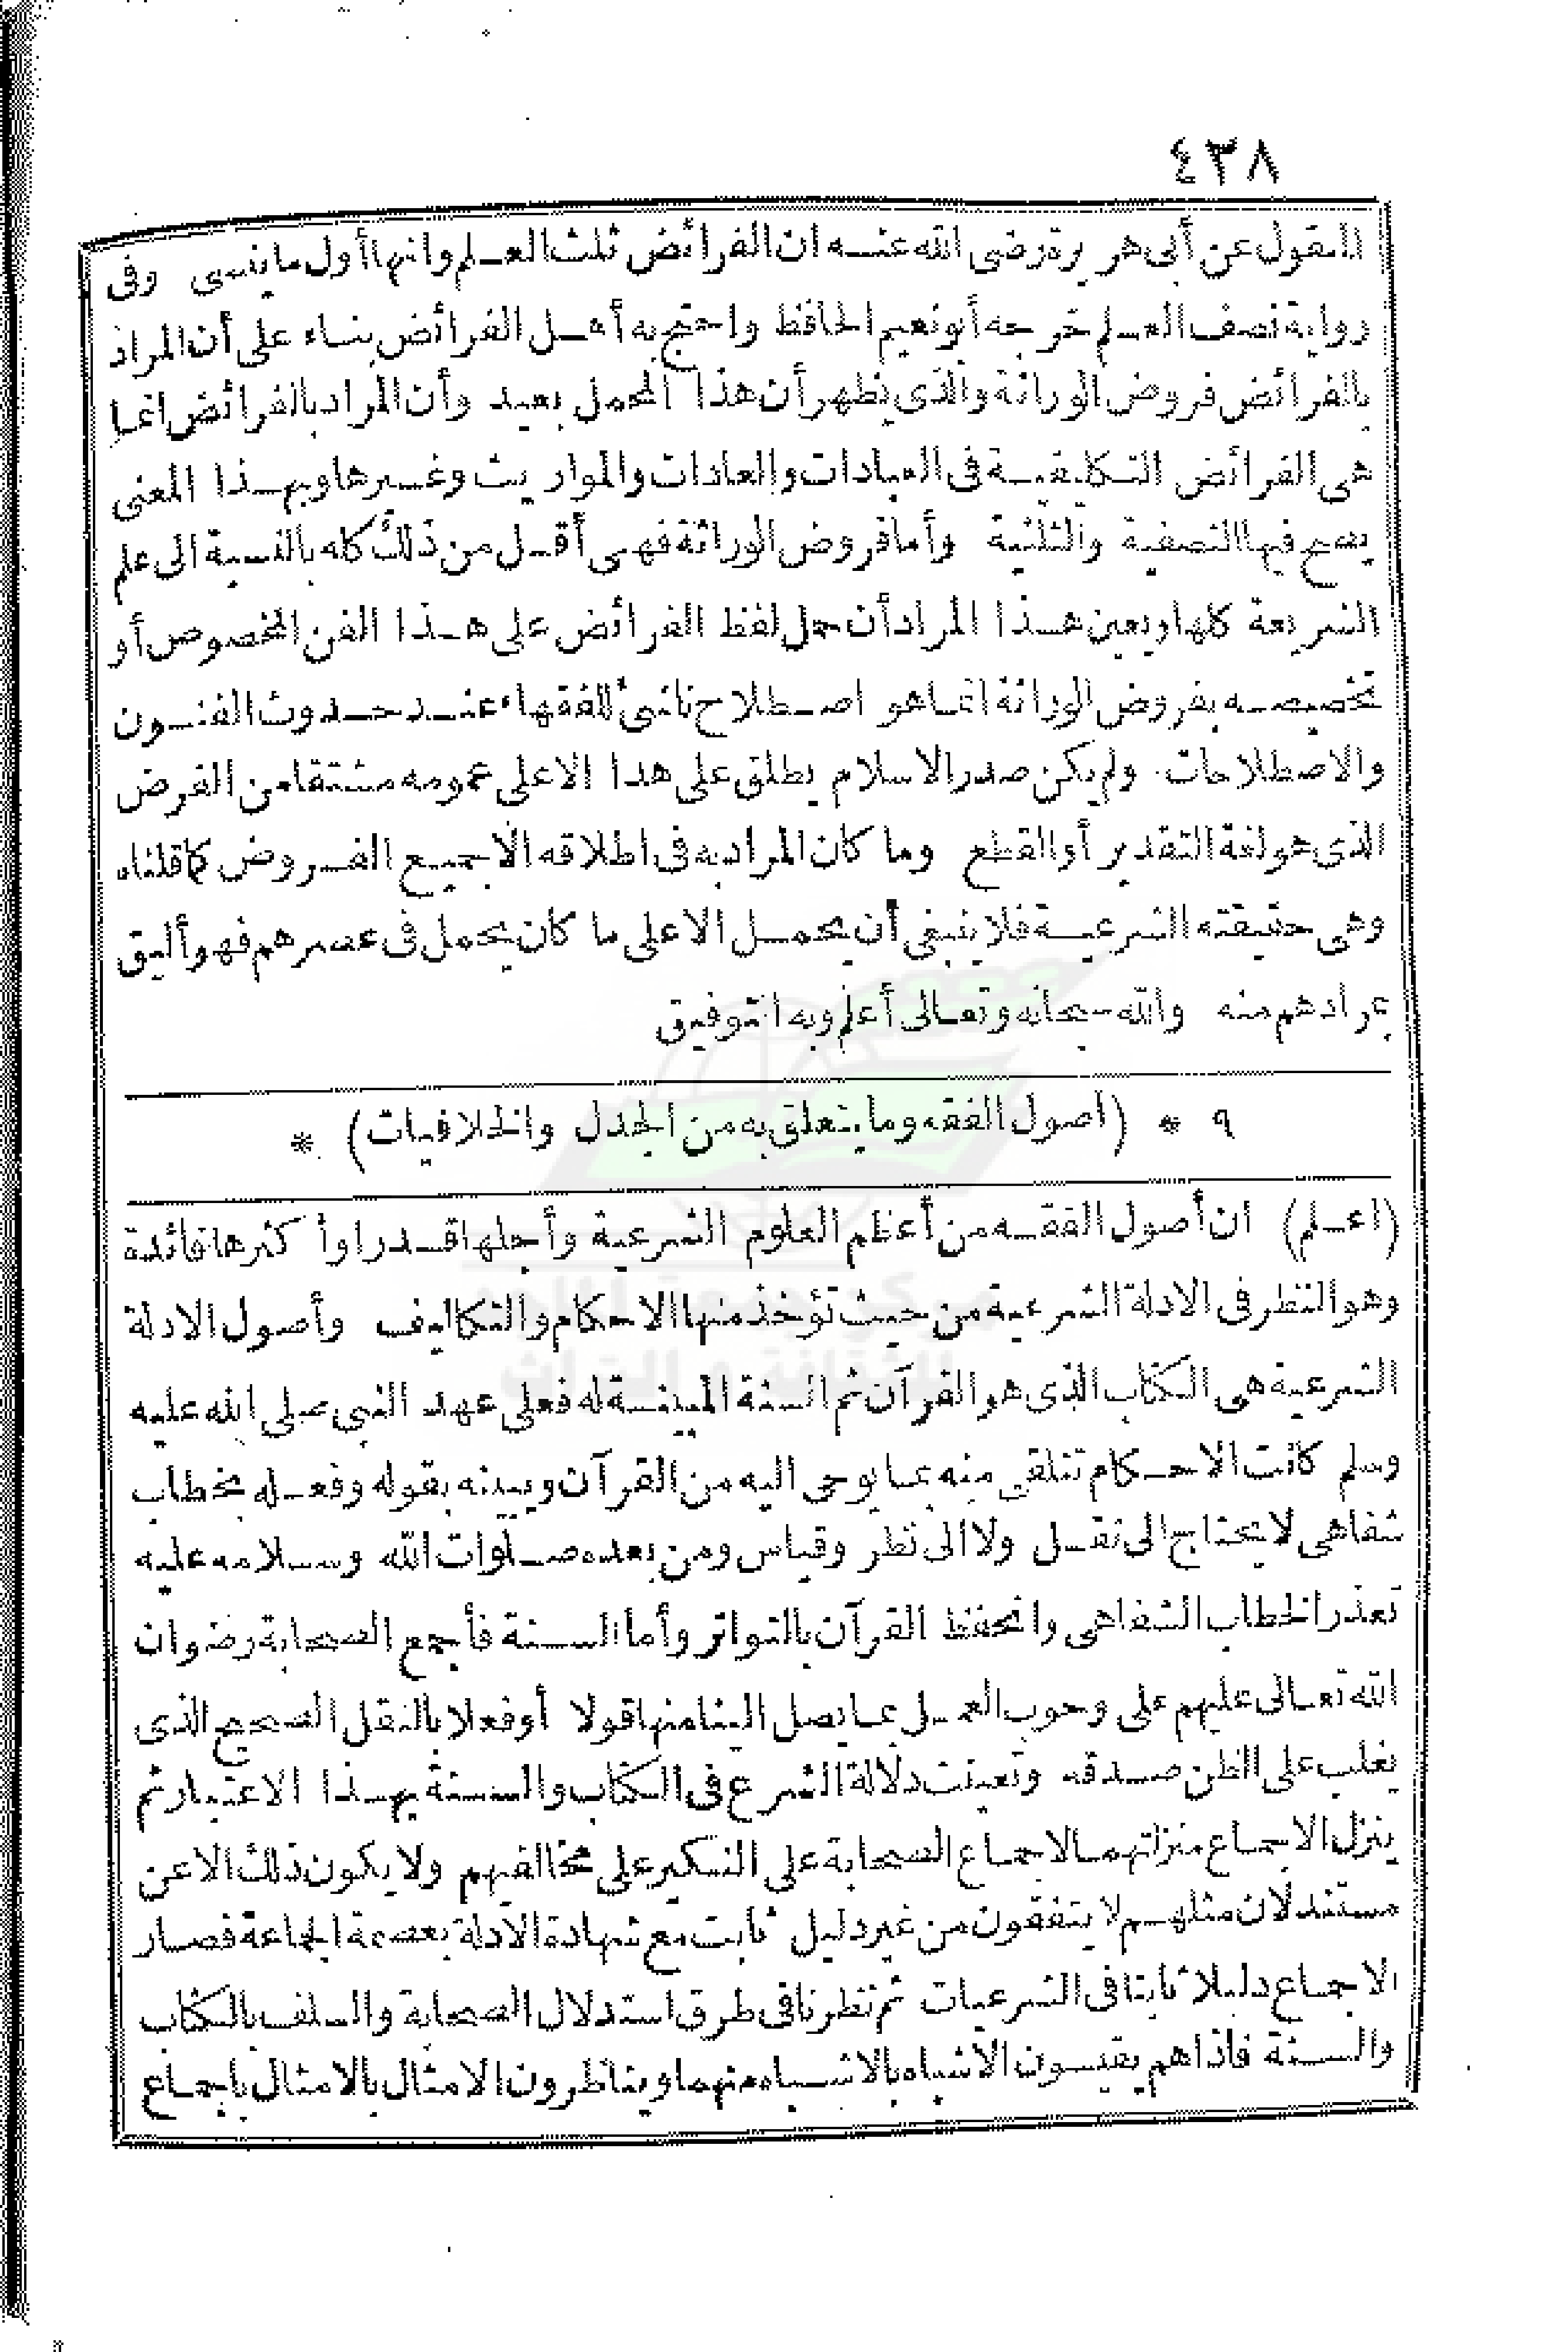 ٤٣٨
المنقول عن أبى هريرة رضى الله عنه ان الفرائض ثلث العلم وانها أول ما ينسى وفى
رواية نصف العلم خرجه أبو نعيم الحافظ واحتج به أهل الفرائض بناء على أن المراد
بالفرائض فروض الوراثة والذى يظهر أن هذا المحمل بعيد وأن المراد بالفرائض انما
هى الفرائض التكليفية فى العبادات والعادات والمواريث وغيرها وبهذا المعنى
يصح فيها النصفية والثلثية وأما فروض الوراثة فهى أقل من ذلك كله بالنسبة الى علم
الشريعة كلها ويعين هذا المراد أن حمل لفظ الفرائض على هذا الفن المخصوص أو
تخصيصه بفروض الوراثة انما هو اصطلاح ناشئ للفقهاء عند حدوث الفنون
والاصطلاحات ولم يكن صدر الاسلام يطلق على هذا الا على عمومه مشتقا من الفرض
الذى هو لغة التقدير أو القطع وما كان المراد به فى اطلاقه الا جميع الفروض كما قلناه
وهى حقيقته الشرعية فلا ينبغى أن يحمل الا على ما كان يحمل فى عصرهم فهو أليق
بمرادهم منه والله سبحانه وتعالى أعلم وبه التوفيق
٩ * (أصول الفقه وما يتعلق به من الجدل والخلافيات) *
(اعلم) ان أصول الفقه من أعظم العلوم الشرعية وأجلها قدرا وأكثرها فائدة
وهو النظر فى الادلة الشرعية من حيث تؤخذ منها الاحكام والتكاليف وأصول الادلة
الشرعية هى الكتاب الذى هو القرآن ثم السنة المبينة له فعلى عهد النبى صلى الله عليه
وسلم كانت الاحكام تتلقى منه بما يوحى اليه من القرآن ويبينه بقوله وفعله بخطاب
شفاهى لا يحتاج الى نقل ولا الى نظر وقياس ومن بعده صلوات الله وسلامه عليه
تعذر الخطاب الشفاهى وانحفظ القرآن بالتواتر وأما السنة فأجمع الصحابة رضوان
الله تعالى عليهم على وجوب العمل بما يصل الينا منها قولا أو فعلا بالنقل الصحيح الذى
يغلب على الظن صدقه وتعينت دلالة الشرع فى الكتاب والسنة بهذا الاعتبار ثم
ينزل الاجماع منزلتهما لاجماع الصحابة على النكير على مخالفيهم ولا يكون ذلك الا عن
مستند لان مثلهم لا يتفقون من غير دليل ثابت مع شهادة الادلة بعصمة الجماعة فصار
الاجماع دليلا ثابتا فى الشرعيات ثم نظرنا فى طرق استدلال الصحابة والسلف بالكتاب
والسنة فاذا هم يقيسون الاشباه بالاشباه منهما ويناظرون الامثال بالامثال باجماع
مركز جمعة الماجد
للثقافة و التراث